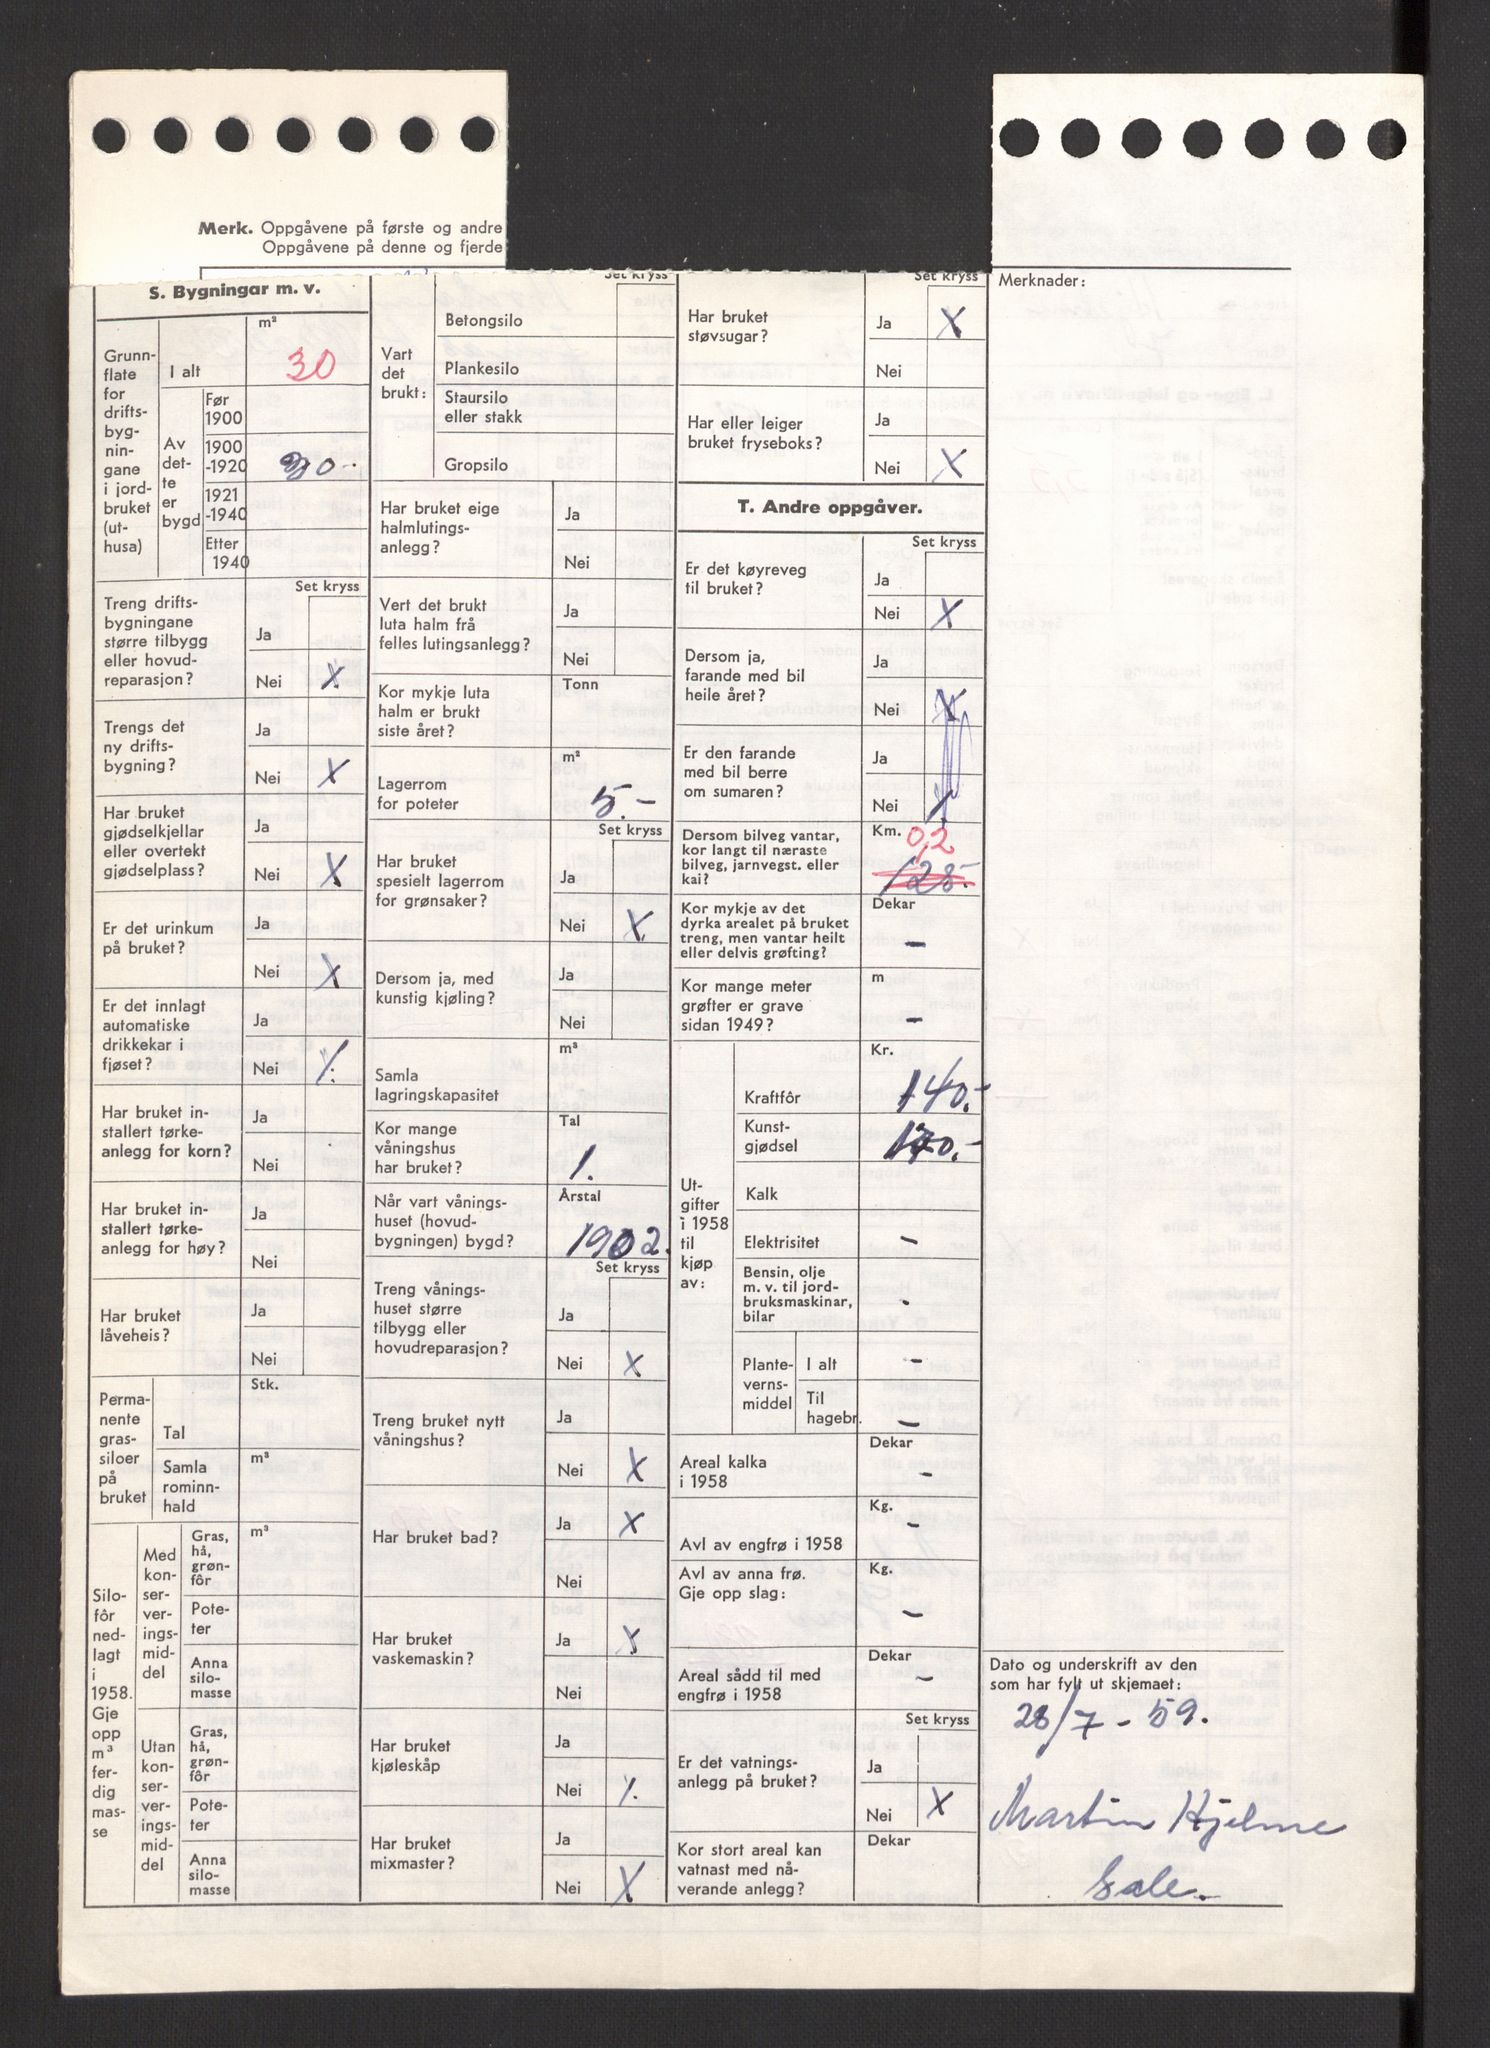 Merk. Oppgåvene på første og andre
Oppgåvene på denne og fjerde
S. Bygningar m. v.
Grunn-
flate
for
drifts-
byg-
nin-
gane
i jord-
bruket
(ut-
husa)
m²
I alt
30
Av
det-
te
er
bygd
Før
1900
1900
-1920
30.-
1921
-1940
Etter
1940
Set kryss
Treng drifts-
bygningane
større tilbygg
eller hovud-
reparasjon?
Ja
Nei X
Trengs det
ny drifts-
bygning?
Ja
Nei X
Har bruket
gjødselkjellar
eller overtekt
gjødselplass?
Ja
Nei X
Er det urinkum
på bruket?
Ja
Nei X
Er det innlagt
automatiske
drikkekar i
fjøset?
Ja
Nei X
Har bruket in-
stallert tørke-
anlegg for korn?
Ja
Nei
Har bruket in-
stallert tørke-
anlegg for høy?
Ja
Nei
Har bruket
låveheis?
Ja
Nei
Perma-
nente
gras-
siloer
på
bruket
Stk.
Tal
Samla
rominn-
hald
m³
Silo-
fôr
ned-
lagt
i
1958.
Gje
opp
m³
fer-
dig
mas-
se
Med
kon-
ser-
ver-
ings-
mid-
del
Gras,
hå,
grøn-
fôr
m³
Pote-
ter
Anna
silo-
masse
Utan
kon-
ser-
ver-
ings-
mid-
del
Gras,
hå,
grøn-
fôr
Pote-
ter
Anna
silo-
masse
Set kryss
Vart
det
brukt:
Betongsilo
Plankesilo
Staursilo
eller stakk
Gropsilo
Har bruket eige
halmlutings-
anlegg?
Ja
Nei
Vert det brukt
luta halm frå
felles lutingsanlegg?
Ja
Nei
Kor mykje luta
halm er brukt
siste året?
Tonn
Lagerrom
for poteter
m²
5.-
Set kryss
Har bruket
spesielt lagerrom
for grønsaker?
Ja
Nei X
Dersom ja, med
kunstig kjøling?
Ja
Nei
Samla
lagringskapasitet
m³
Kor mange
våningshus
har bruket?
Tal
1.
Når vart vånings-
huset (hovud-
bygningen) bygd?
Årstal
1902.
Set kryss
Treng vånings-
huset større
tilbygg eller
hovudreparasjon?
Ja
Nei X
Treng bruket nytt
våningshus?
Ja
Nei X
Har bruket bad?
Ja X
Nei
Har bruket
vaskemaskin?
Ja X
Nei
Har bruket
kjøleskåp
Ja
Nei X
Har bruket
mixmaster?
Ja
Nei X
Set kryss
Har bruket
støvsugar?
Ja X
Nei
Har eller leiger
bruket fryseboks?
Ja
Nei X
T. Andre oppgåver.
Set kryss
Er det køyreveg
til bruket?
Ja
Nei X
Dersom ja,
farande med bil
heile året?
Ja
Nei X
Er den farande
med bil berre
om sumaren?
Ja
Nei X
Dersom bilveg vantar,
kor langt til næraste
bilveg, jarnvegst. eller
kai?
Km.
0,2
128.-
Kor mykje av det
dyrka arealet på bruket
treng, men vantar heilt
eller delvis grøfting?
Dekar
-
Kor mange meter
grøfter er grave
sidan 1949?
m
-
Ut-
gifter
i 1958
til
kjøp
av:
Kr.
Kraftfôr
140.-
Kunst-
gjødsel
170.-
Kalk
Elektrisitet
-
Bensin, olje
m. v. til jord-
bruksmaskinar,
bilar
-
Plante-
verns-
middel
I alt
-
Til
hagebr.
-
Areal kalka
i 1958
Dekar
-
Avl av engfrø i 1958
Kg.
-
Avl av anna frø.
Gje opp slag:
Kg.
-
Areal sådd til med
engfrø i 1958
Dekar
-
Set kryss
Er det vatnings-
anlegg på bruket?
Ja
Nei X
Kor stort areal kan
vatnast med nå-
verande anlegg?
Dekar
Merknader:
Dato og underskrift av den
som har fylt ut skjemaet:
28/7 - 59.
Martin Hjelme